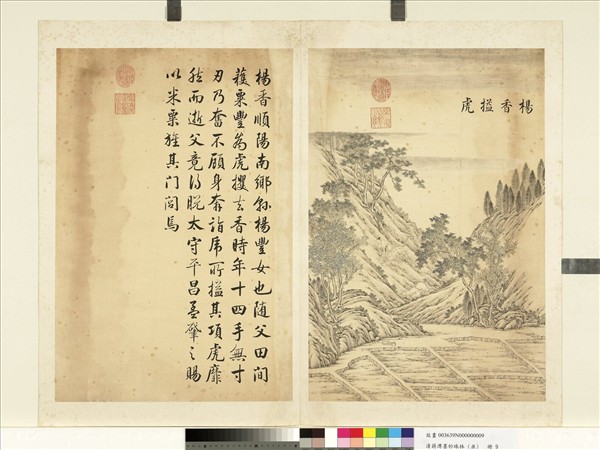 楊香搤虎
楊香順陽南鄉縣楊豐女也隨父田間
穫粟豐為虎攫去香時年十四手無寸
刃乃奮不顧身奔詣虎所搤其項虎靡
然而逝父竟得脫太守平昌孟肇之賜
以米粟旌其門閭焉
故畫 003639N000000009
冊 9